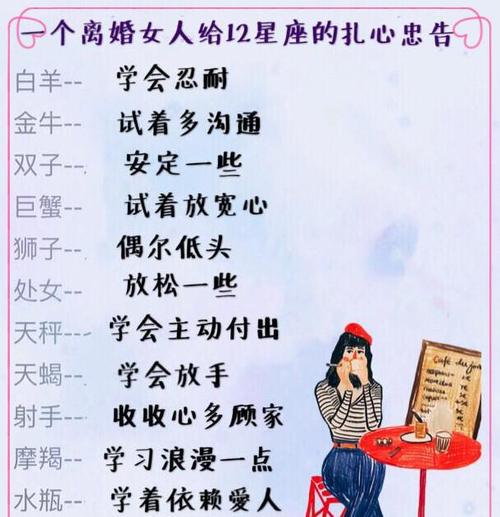 一个离婚女人给12星座的扎心忠告
白羊-- 学会忍耐
金牛-- 试着多沟通
双子-- 安定一些
巨蟹-- 试着放宽心
狮子-- 偶尔低头
处女-- 放松一些
天秤--- 学会主动付出
天蝎-- 学会放手
射手-- 收收心多顾家
摩羯-- 学习浪漫一点
水瓶-- 学着依赖爱人
Café du jour